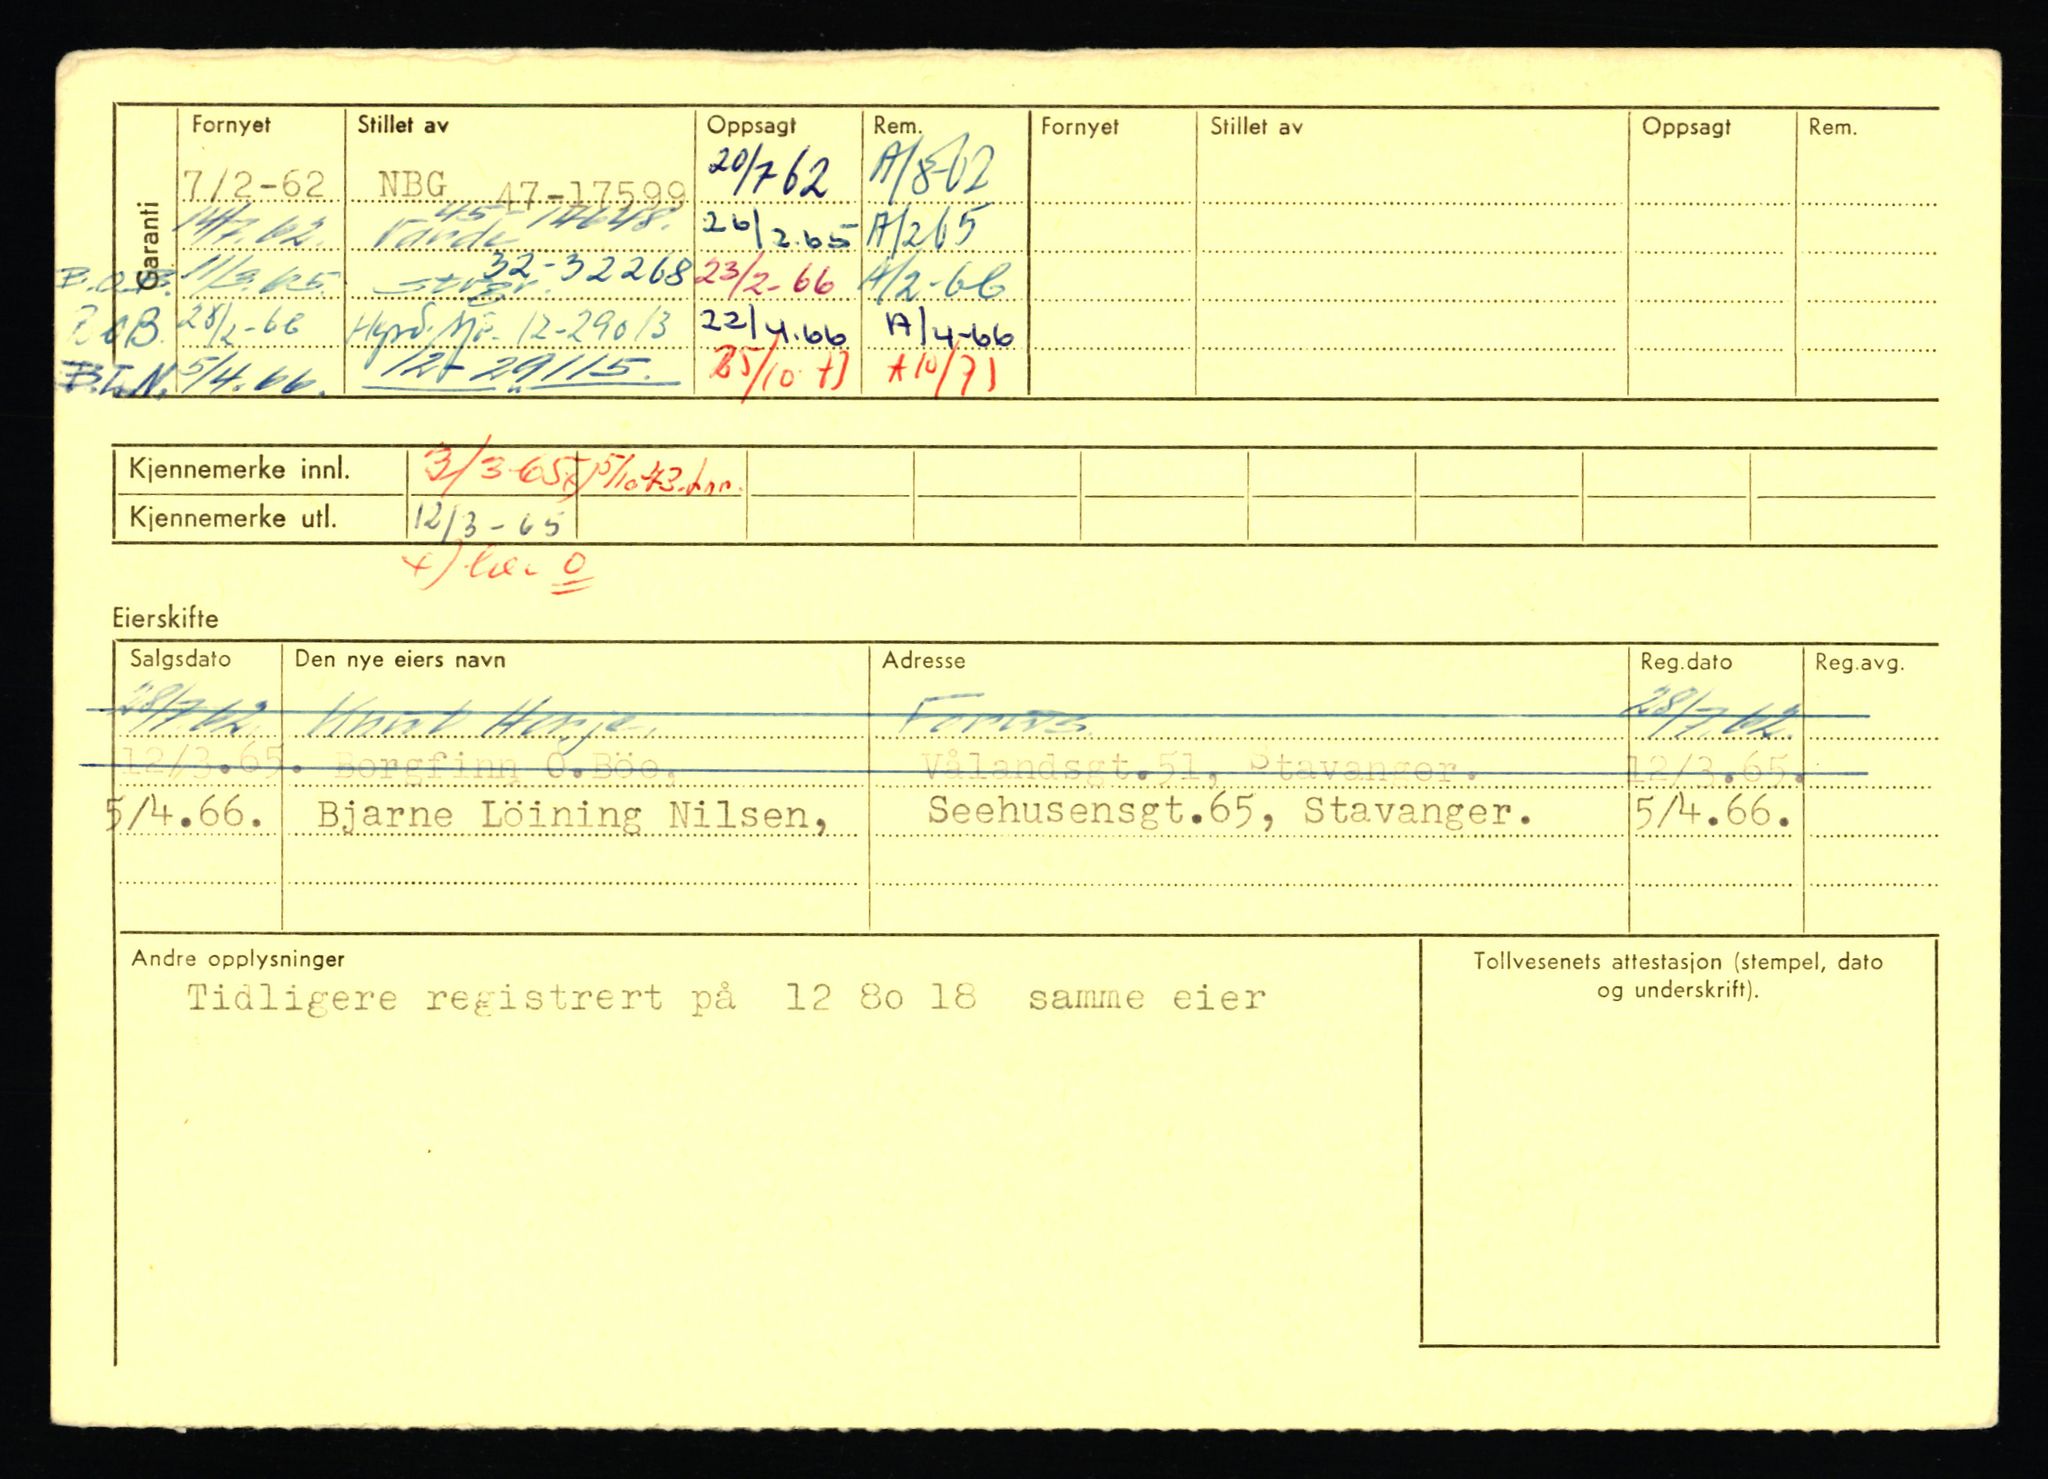 Garanti
Fornyet Stillet av Oppsagt Rem. Fornyet Stillet av Oppsagt Rem.
7/2-62 NBG 47-17599 20/7 62 A/8-62
14/7.62. 45-14648. 26/2.65 A/2 65
B.O.B. 11/3.65. 32-32268 23/2-66 A/2-66
B.O.B. 28/2-66 12-29013 22/4.66 A/4-66
B.L.N. 5/4.66. 12-29115. A 10/71
Kjennemerke innl. 3/3-65 x)
Kjennemerke utl. 12/3-65
x) 0
Eierskifte
Salgsdato Den nye eiers navn Adresse Reg.dato Reg.avg.
28/7 62. Knut Forus 28/7.62.
12/3.65. Borgfinn O.Böe, Vålandsgt.51, Stavanger. 12/3.65.
5/4.66. Bjarne Löining Nilsen, Seehusensgt.65, Stavanger. 5/4.66.
Andre opplysninger
Tidligere registrert på 12 80 18 samme eier
Tollvesenets attestasjon (stempel, dato
og underskrift).